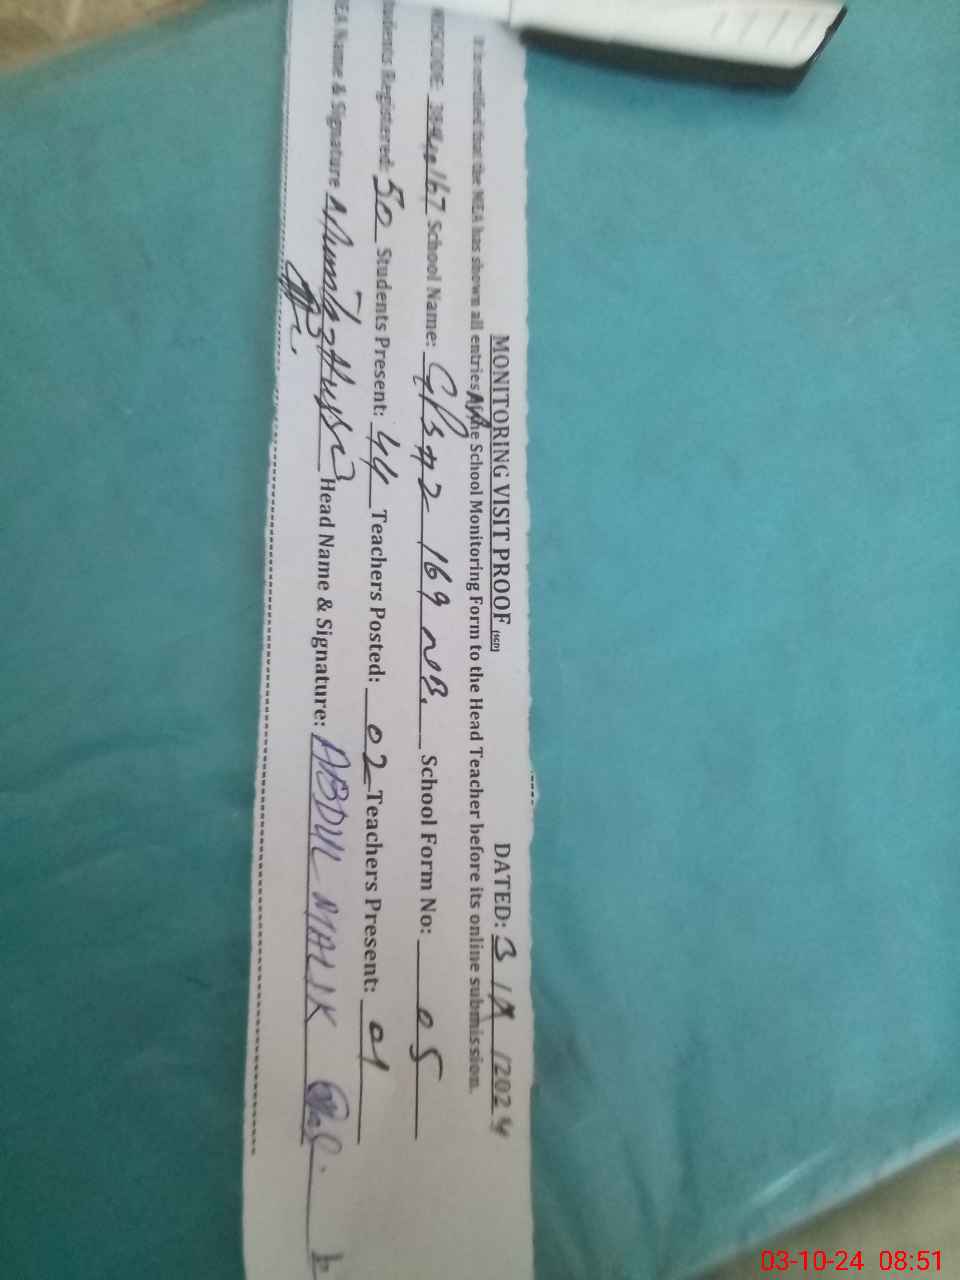 MONITORING VISIT PROOF (SGD) DATED: 3 / /2024
It is certified that the MEA has shown all entries the School Monitoring Form to the Head Teacher before its online submission.
School Name: GPS # 2 169 NB. School Form No: 05
Registered: 50 Students Present: 44 Teachers Posted: 02 Teachers Present: 01
Name & Signature Head Name & Signature: ABDUL MALIK
03-10-24 08:51